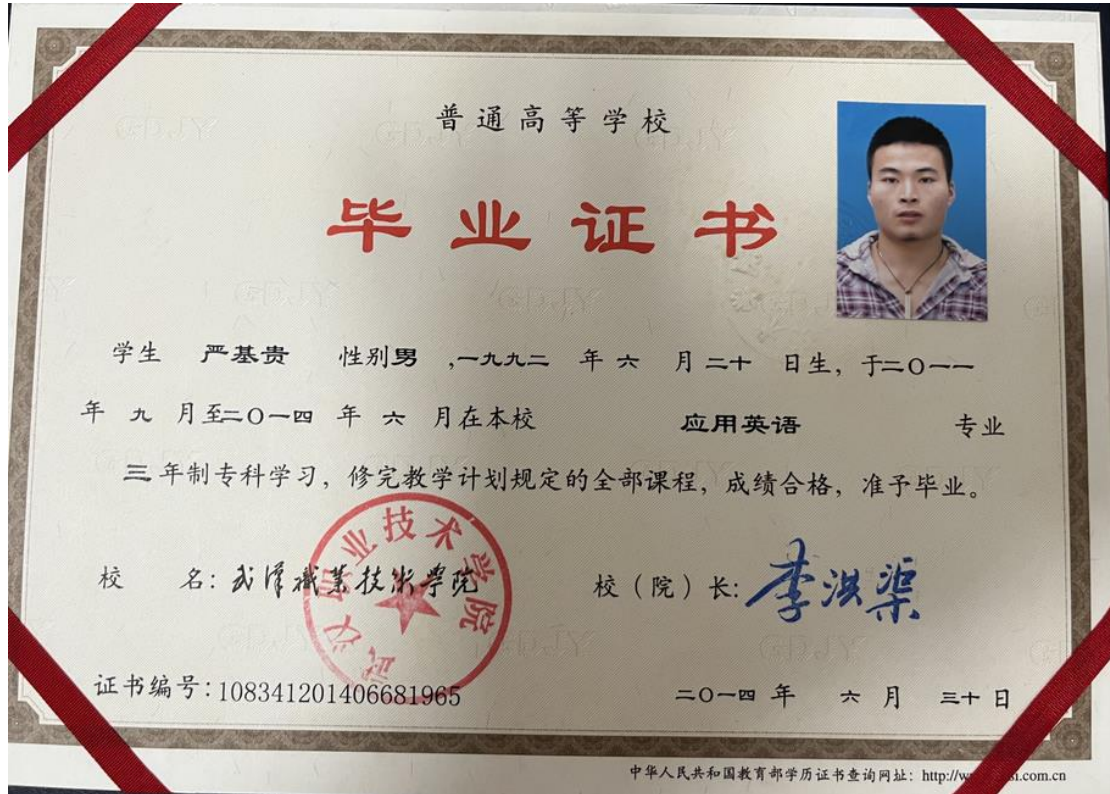 普通高等学校
毕业证书
学生 严基贵 性别男 ,一九九二 年 六 月 二十 日生, 于二〇一一
年 九 月至二〇一四 年 六 月在本校 应用英语 专业
三 年制专科学习, 修完教学计划规定的全部课程, 成绩合格, 准予毕业。
校 名: 武汉職業技術學院 校（院）长: 李洪渠
武汉职业技术学院
证书编号: 108341201406681965 二〇一四 年 六 月 三十 日
中华人民共和国教育部学历证书查询网址: http://w si.com.cn